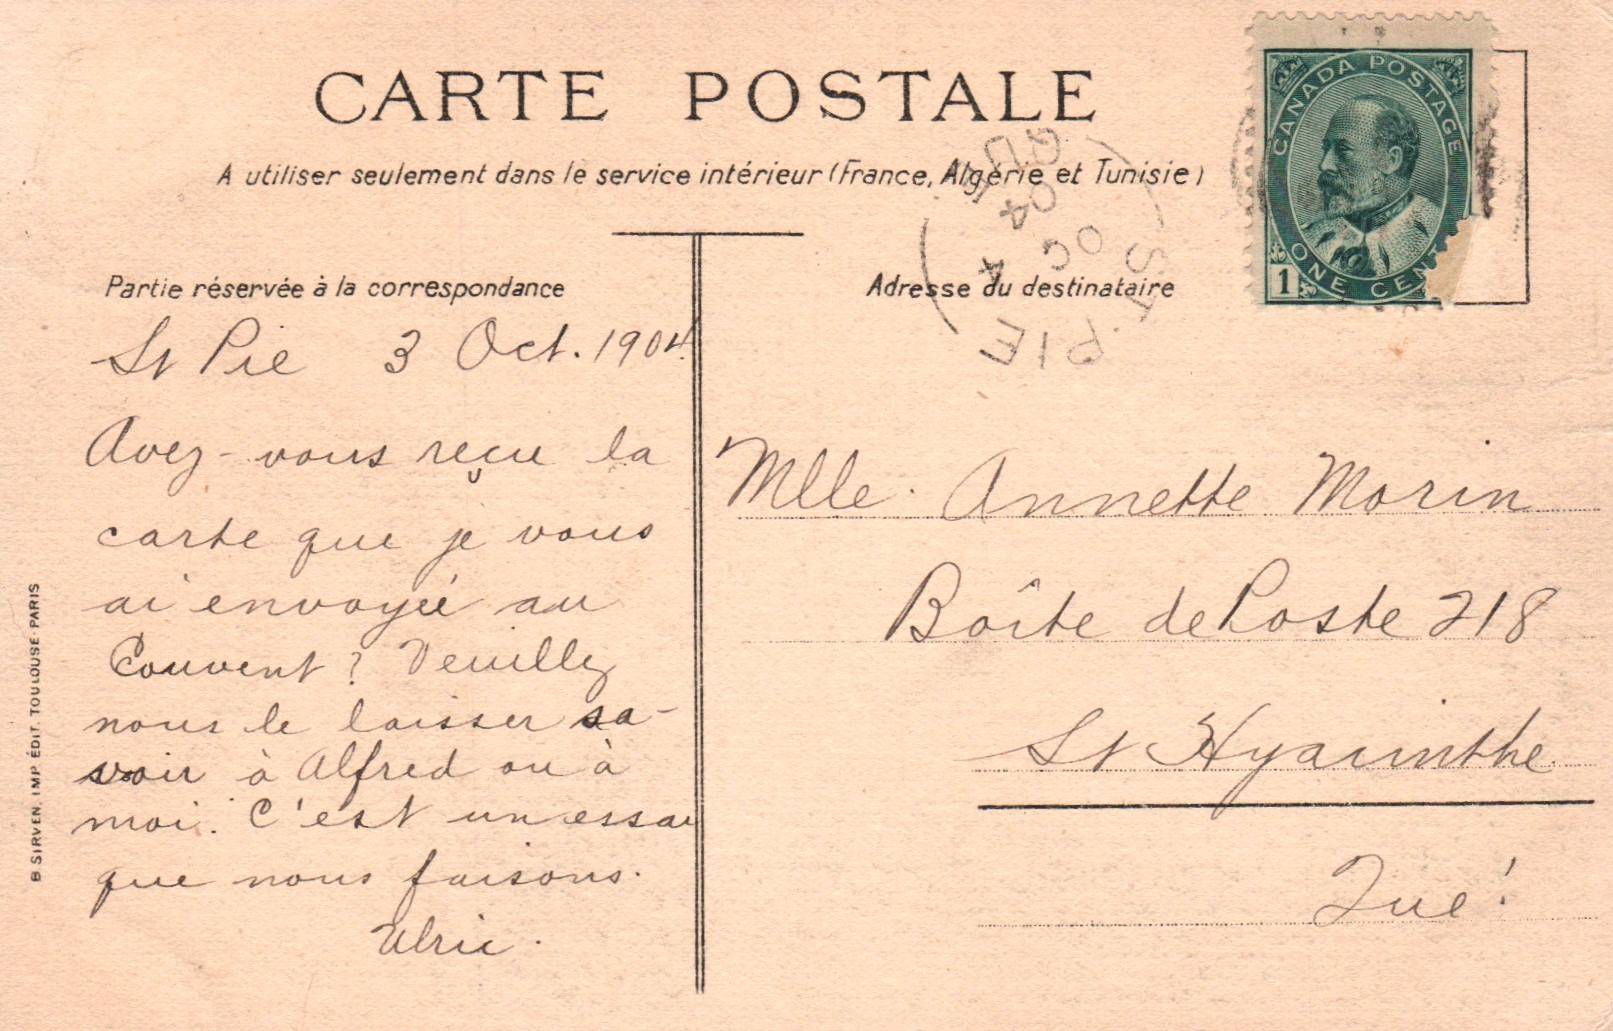 CARTE POSTALE
A utiliser seulement dans le service intérieur (France, Algérie et Tunisie)
Partie réservée à la correspondance
St Pie 3 Oct. 1904
Avez-vous reçu la
carte que je vous
ai envoyée au
Couvent? Veuillez
nous le laisser sa-
voir à Alfred ou à
moi. C'est un essai
que nous faisons.
Ulric.
Adresse du destinataire
Mlle. Annette Morin
Boîte de Poste 218
St Hyacinthe
Qué!
CANADA POSTAGE
ONE CENT
1
ST. PIE
OC 4
04
QUE
B SIRVEN, IMP. ÉDIT. TOULOUSE-PARIS